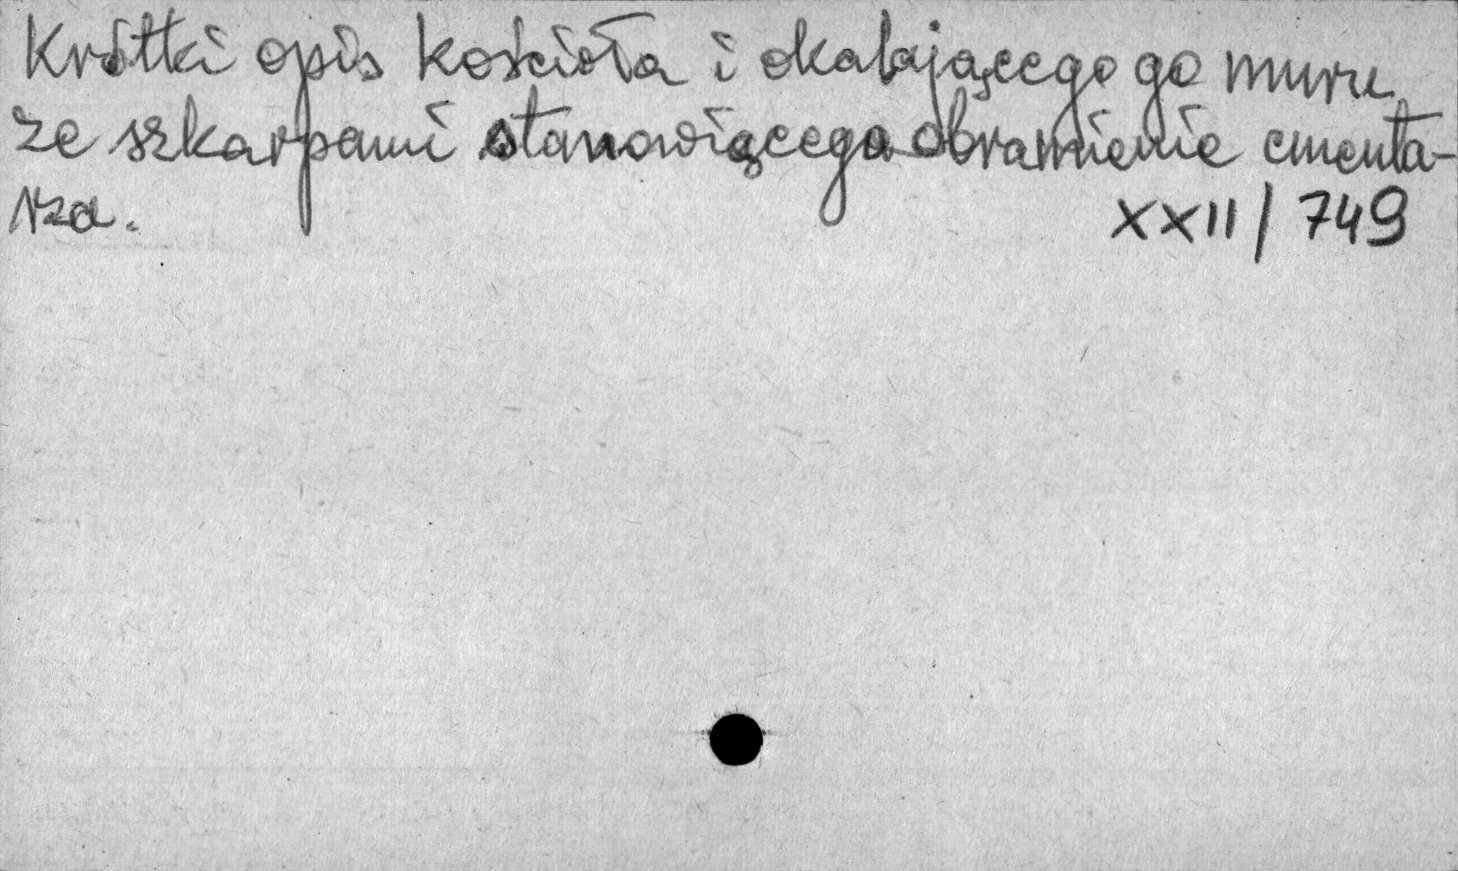 Krótki opis kościoła i okalającego go muru
ze szkarpami stanowiącego obramienie cmenta-
rza.
XXII/749